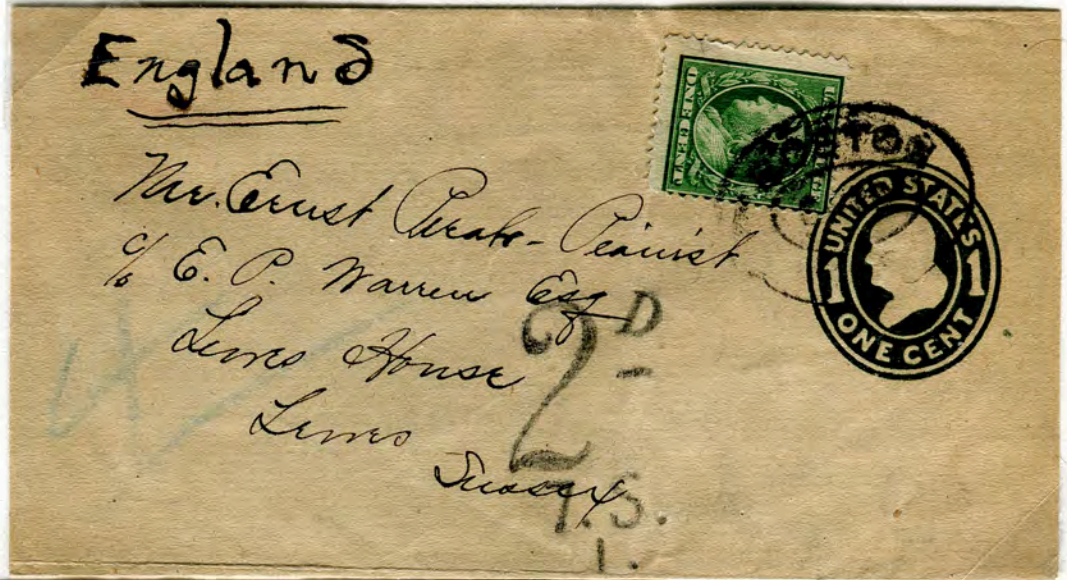 England
Mr. Ernst Perabo - Pianist
c/o E. P. Warren Esq
Lewes House
Lewes
Sussex
ONE CENT
BOSTON
UNITED STATES
1 1
ONE CENT
2D
T.S.
1.